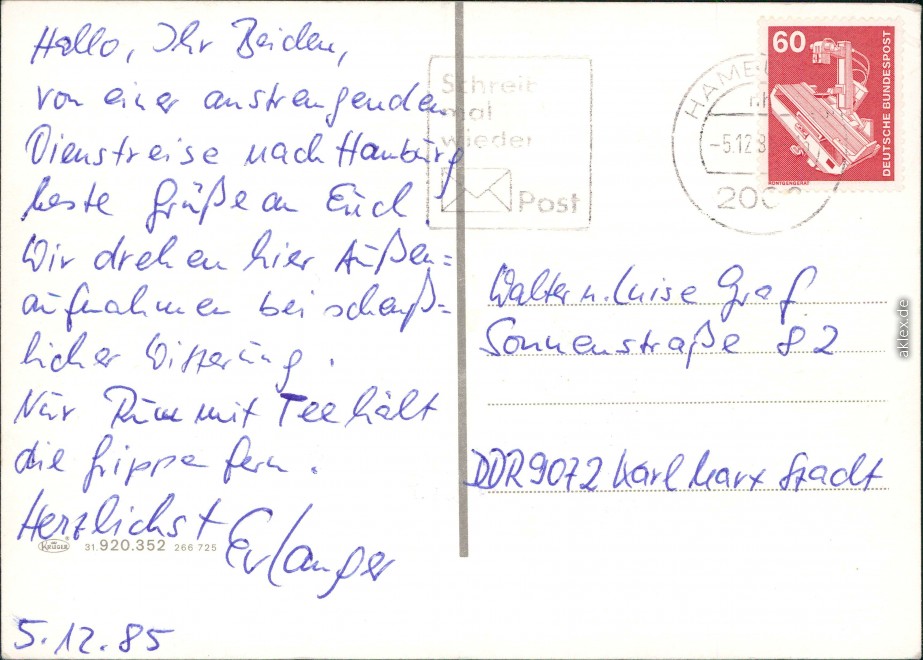 Hallo, Ihr Beiden,
von einer anstrengenden
Dienstreise nach Hamburg
beste Grüße an Euch.
Wir drehen hier Außen=
aufnahmen bei scheuß=
licher Witterung.
Nur Rum mit Tee hält
die Grippe fern.
Herzlichst
Erlanger
5.12.85
KRÜGER
31.920.352 266 725
Schreib
mal
wieder
Post
HAMBU
-5.12.8
200
60
DEUTSCHE BUNDESPOST
RÖNTGENGERÄT
Walter u. Luise Graf
Sonnenstraße 82
DDR 9072 Karl Marx Stadt
aklex.de